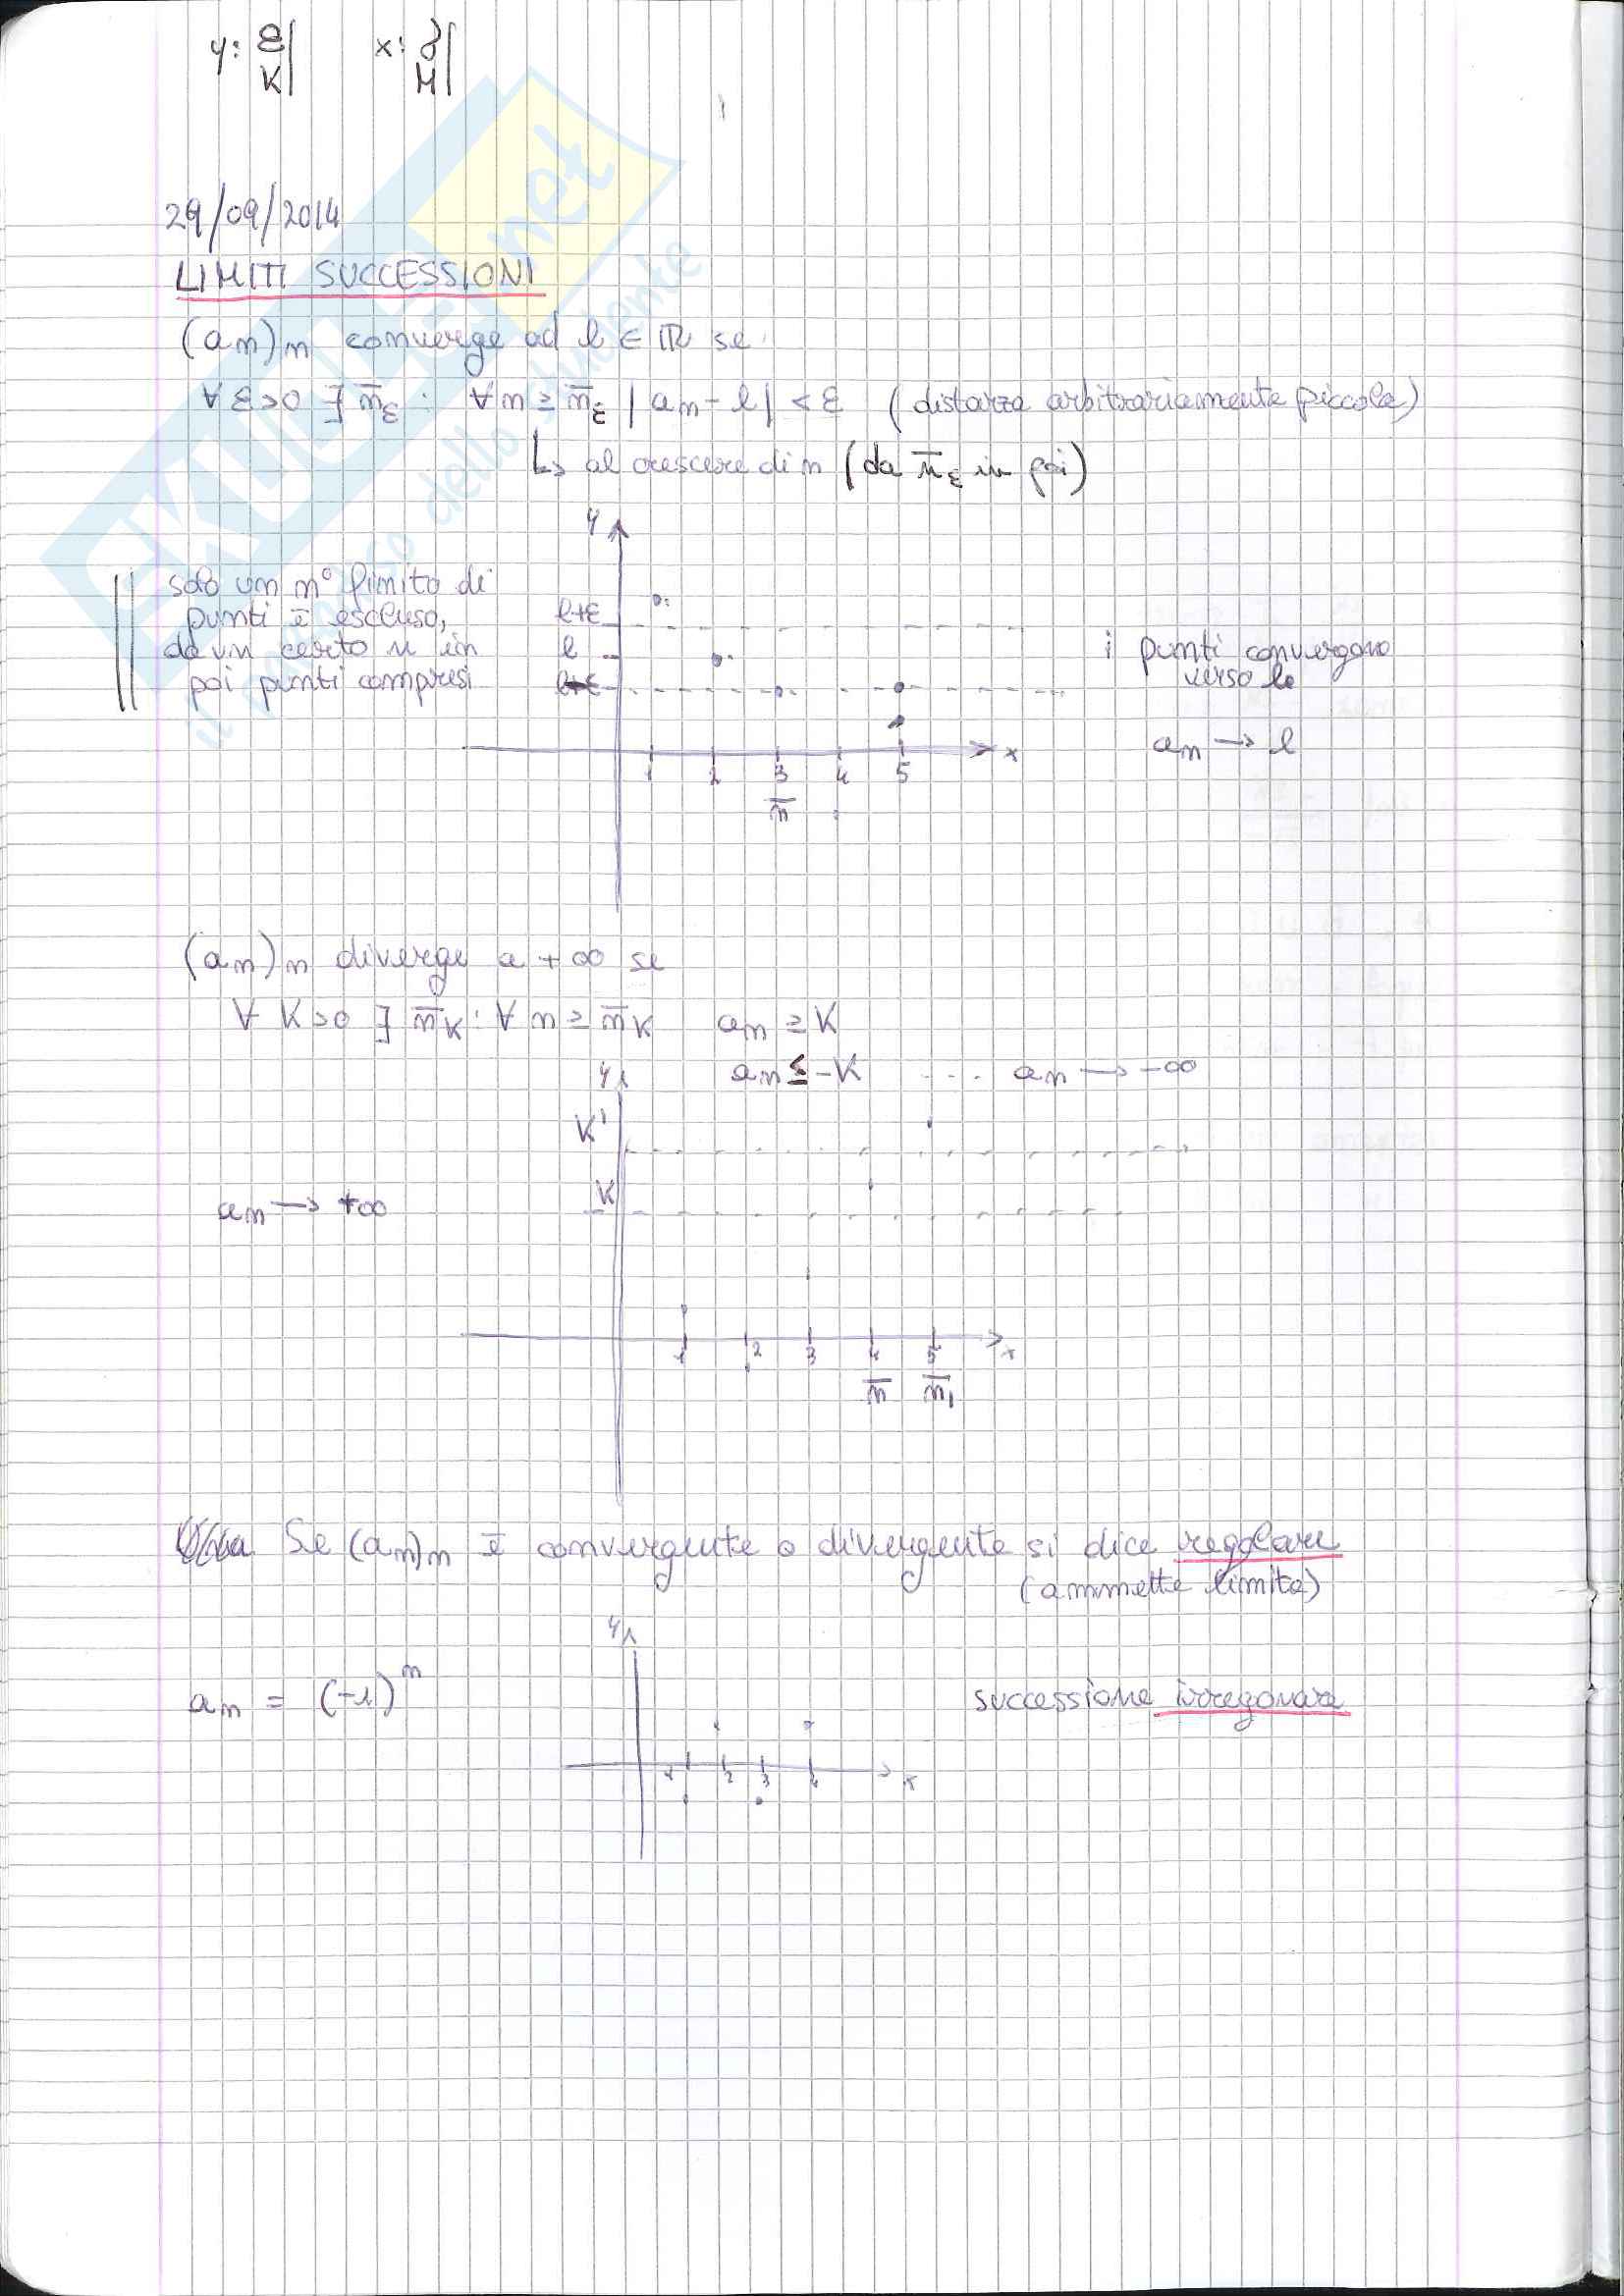 y: ε| x: δ|
K| M|
29/09/2014
LIMITI SUCCESSIONI
(an)n converge ad l ∈ ℝ se
∀ ε>0 ∃ n̄ε : ∀n ≥ n̄ε |an - l| < ε (distanza arbitrariamente piccola)
↳ al crescere di n (da n̄ε in poi)
y
solo un n° finito di
punti è escluso,
da un certo n in
poi punti compresi
l+ε
l
l-ε
i punti convergono
verso l
an → l
1 2 3 4 5 x
n̄
(an)n diverge a +∞ se
∀ K>0 ∃ n̄K : ∀ n ≥ n̄K an ≥ K
y an ≤ -K ... an → -∞
K'
K
an → +∞
1 2 3 4 5 x
n̄ n̄1
Se (an)n è convergente o divergente si dice regolare
(ammette limite)
y
an = (-1)^n
successione irregolare
1 2 3 4 x
SKUOLA.net
il paradiso dello studente